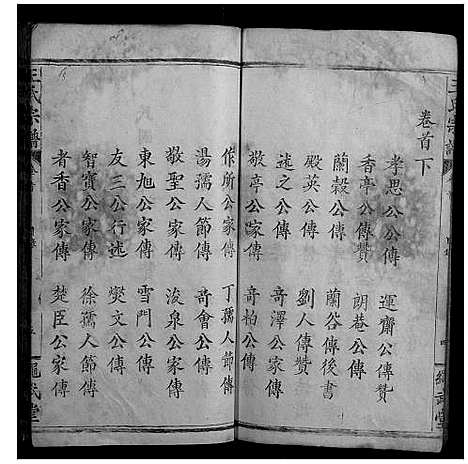 卷首下
孝思公公傳
運齋公傳贊
香亭公傳贊
朗巷公傳
蘭穀公傳
蘭谷傳後書
殿英公傳
劉人傳贊
述之公傳
奇澤公家傳
敬亭公家傳
奇柏公傳
作所公家傳
丁孺人節傳
湯孺人節傳
奇會公傳
敬聖公家傳
浚泉公家傳
東旭公家傳
雪門公家傳
友三公行述
燮文公傳
智實公家傳
徐孺人節傳
者香公家傳
楚臣公家傳
王氏宗譜